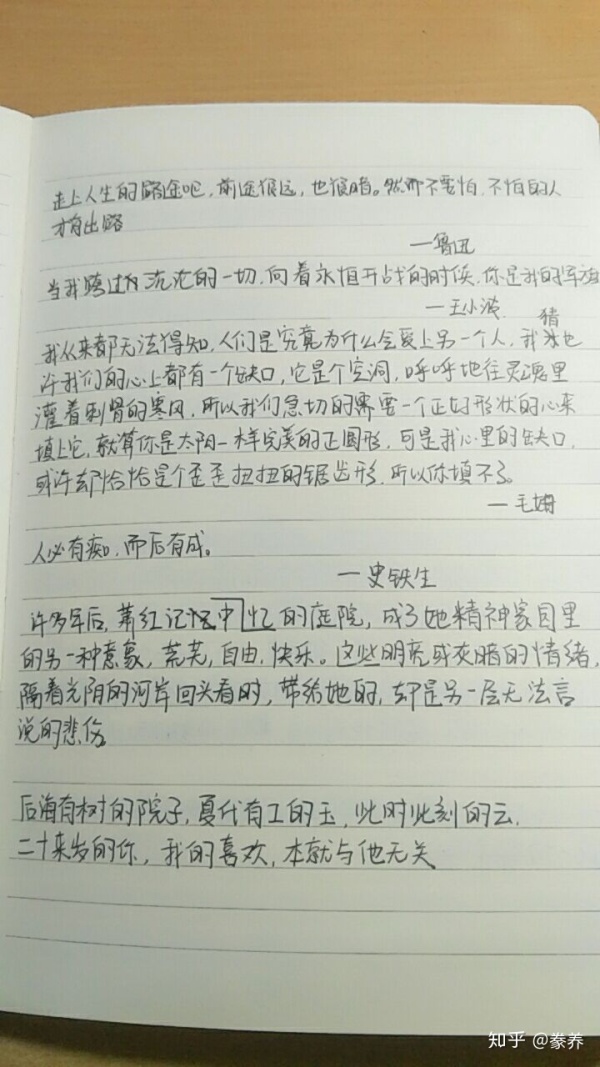 走上人生的路途吧，前途很远，也很暗。然而不要怕，不怕的人
才有出路
—鲁迅
当我跨过沉沦的一切，向着永恒开战的时候，你是我的军旗
—王小波
我从来都无法得知，人们是究竟为什么会爱上另一个人，我猜也
许我们的心上都有一个缺口，它是个空洞，呼呼地往灵魂里
灌着刺骨的寒风，所以我们急切的需要一个正好形状的心来
填上它，就算你是太阳一样完美的正圆形，可是我心里的缺口，
或许却恰恰是个歪歪扭扭的锯齿形，所以你填不了。
—毛姆
人必有痴，而后有成。
—史铁生
许多年后，萧红记忆中的庭院，成了她精神家园里
的另一种意象，荒芜，自由，快乐。这些明亮或灰暗的情绪，
隔着光阴的河岸回头看时，带给她的，却是另一层无法言
说的悲伤
后海有树的院子，夏代有工的玉，此时此刻的云，
二十来岁的你，我的喜欢，本就与他无关
知乎 @豢养